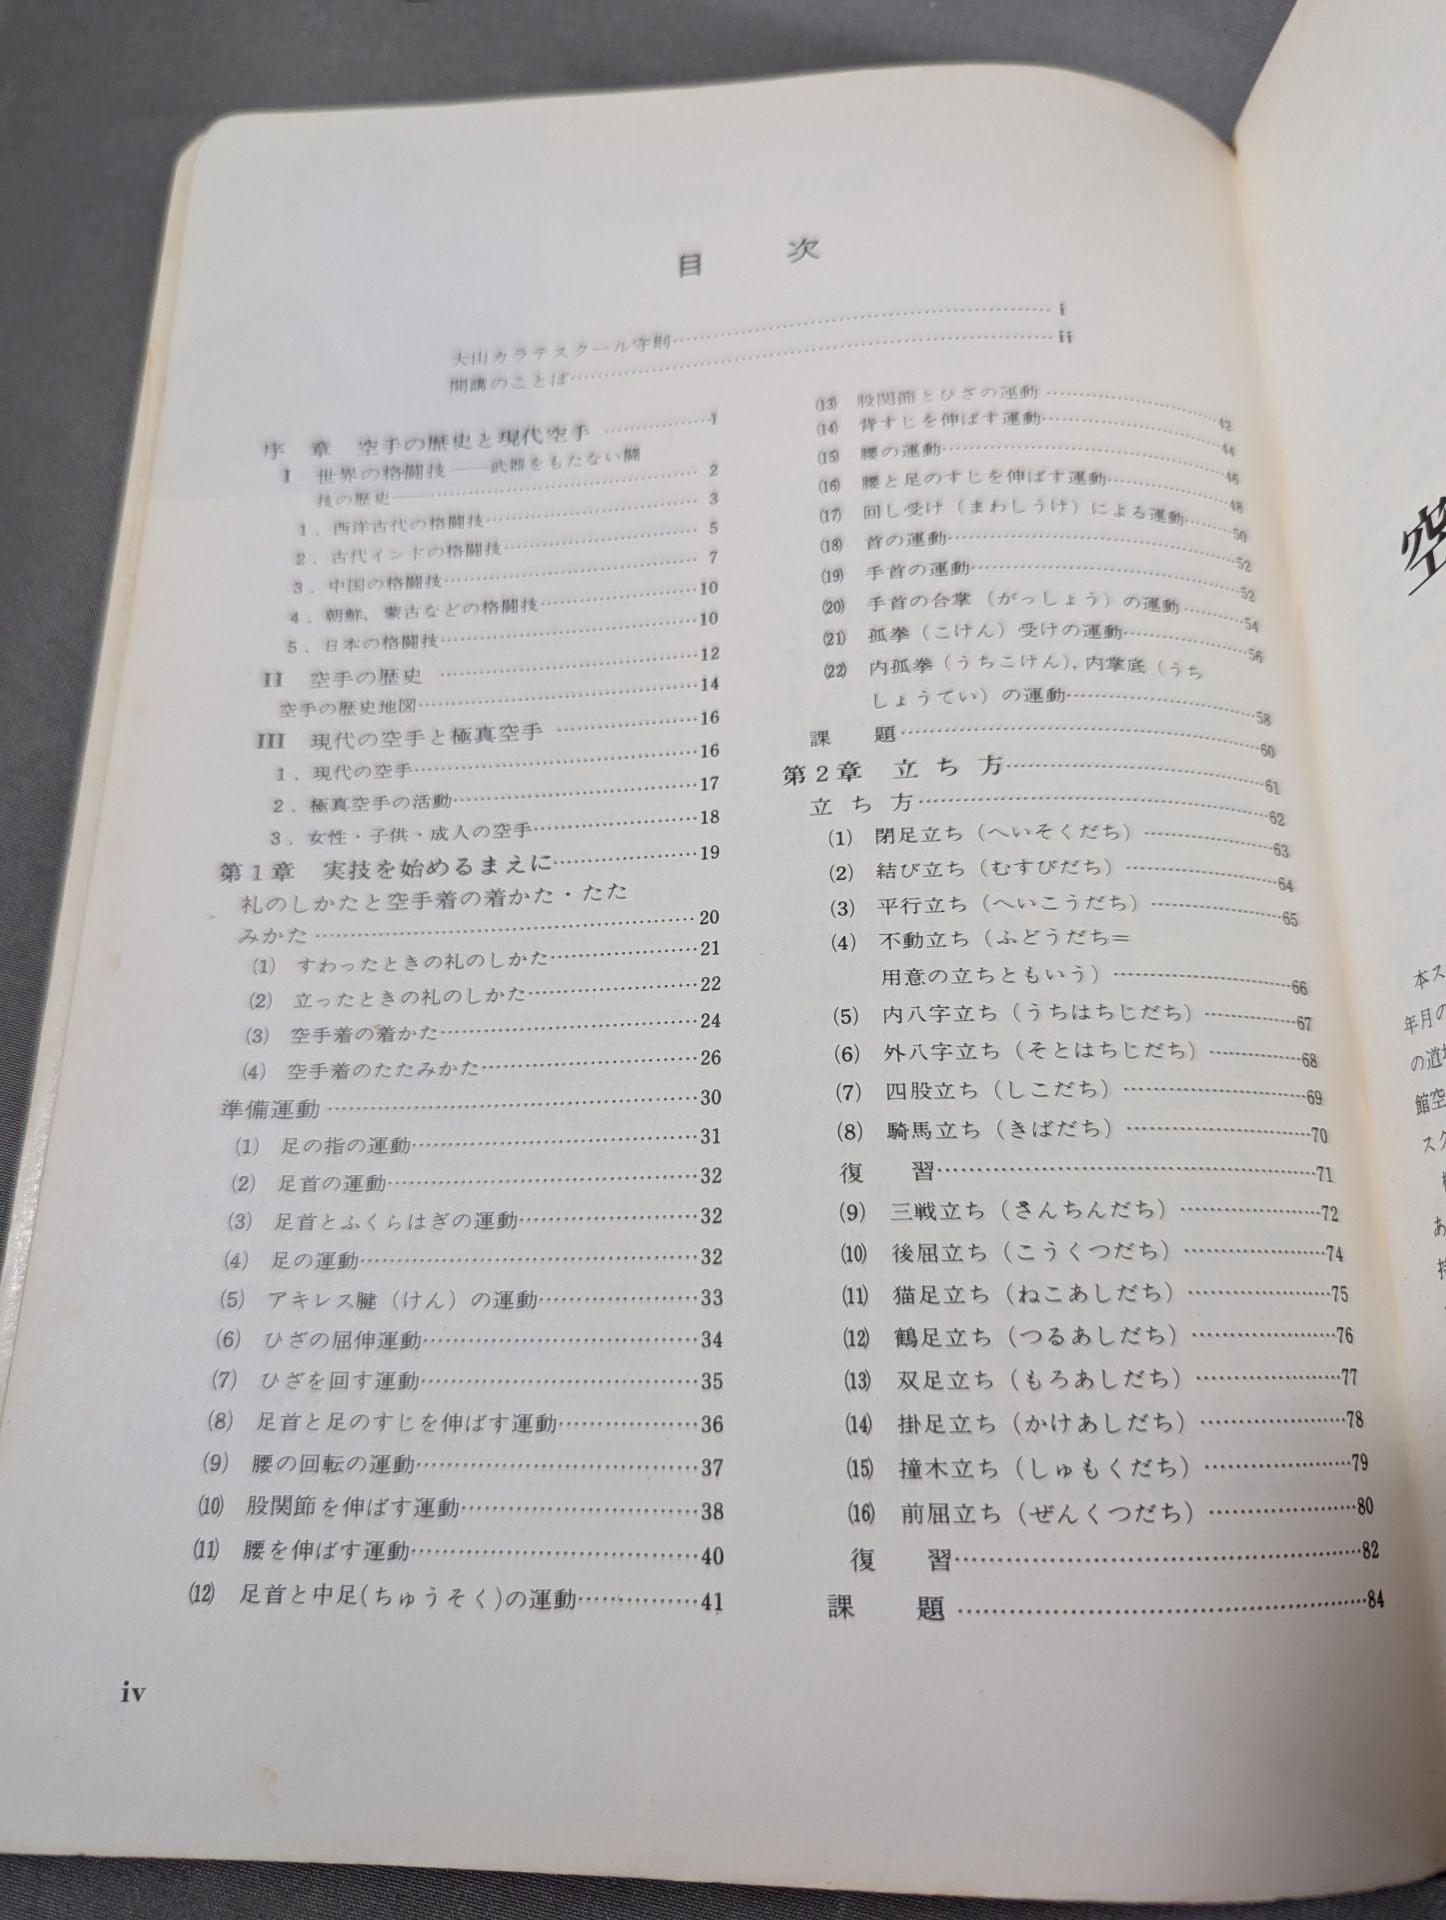 目　次
大山カラテスクール守則 i
開講のことば ii
序　章　空手の歴史と現代空手 1
I　世界の格闘技——武器をもたない闘
技の歴史—— 2
1．西洋古代の格闘技 3
2．古代インドの格闘技 5
3．中国の格闘技 7
4．朝鮮，蒙古などの格闘技 10
5．日本の格闘技 10
II　空手の歴史 12
空手の歴史地図 14
III　現代の空手と極真空手 16
1．現代の空手 16
2．極真空手の活動 17
3．女性・子供・成人の空手 18
第1章　実技を始めるまえに 19
礼のしかたと空手着の着かた・たた
みかた 20
(1)　すわったときの礼のしかた 21
(2)　立ったときの礼のしかた 22
(3)　空手着の着かた 24
(4)　空手着のたたみかた 26
準備運動 30
(1)　足の指の運動 31
(2)　足首の運動 32
(3)　足首とふくらはぎの運動 32
(4)　足の運動 32
(5)　アキレス腱（けん）の運動 33
(6)　ひざの屈伸運動 34
(7)　ひざを回す運動 35
(8)　足首と足のすじを伸ばす運動 36
(9)　腰の回転の運動 37
(10)　股関節を伸ばす運動 38
(11)　腰を伸ばす運動 40
(12)　足首と中足(ちゅうそく)の運動 41
(13)　股関節とひざの運動 42
(14)　背すじを伸ばす運動 44
(15)　腰の運動 46
(16)　腰と足のすじを伸ばす運動 48
(17)　回し受け（まわしうけ）による運動 50
(18)　首の運動 52
(19)　手首の運動 52
(20)　手首の合掌（がっしょう）の運動 54
(21)　孤拳（こけん）受けの運動 56
(22)　内孤拳（うちこけん），内掌底（うち
しょうてい）の運動 58
課　題 60
第2章　立ち方 61
立ち方 62
(1)　閉足立ち（へいそくだち） 63
(2)　結び立ち（むすびだち） 64
(3)　平行立ち（へいこうだち） 65
(4)　不動立ち（ふどうだち＝
用意の立ちともいう） 66
(5)　内八字立ち（うちはちじだち） 67
(6)　外八字立ち（そとはちじだち） 68
(7)　四股立ち（しこだち） 69
(8)　騎馬立ち（きばだち） 70
復　習 71
(9)　三戦立ち（さんちんだち） 72
(10)　後屈立ち（こうくつだち） 74
(11)　猫足立ち（ねこあしだち） 75
(12)　鶴足立ち（つるあしだち） 76
(13)　双足立ち（もろあしだち） 77
(14)　掛足立ち（かけあしだち） 78
(15)　撞木立ち（しゅもくだち） 79
(16)　前屈立ち（ぜんくつだち） 80
復　習 82
課　題 84
iv
空
本ス
年月の
の道場
館空
スク
あ